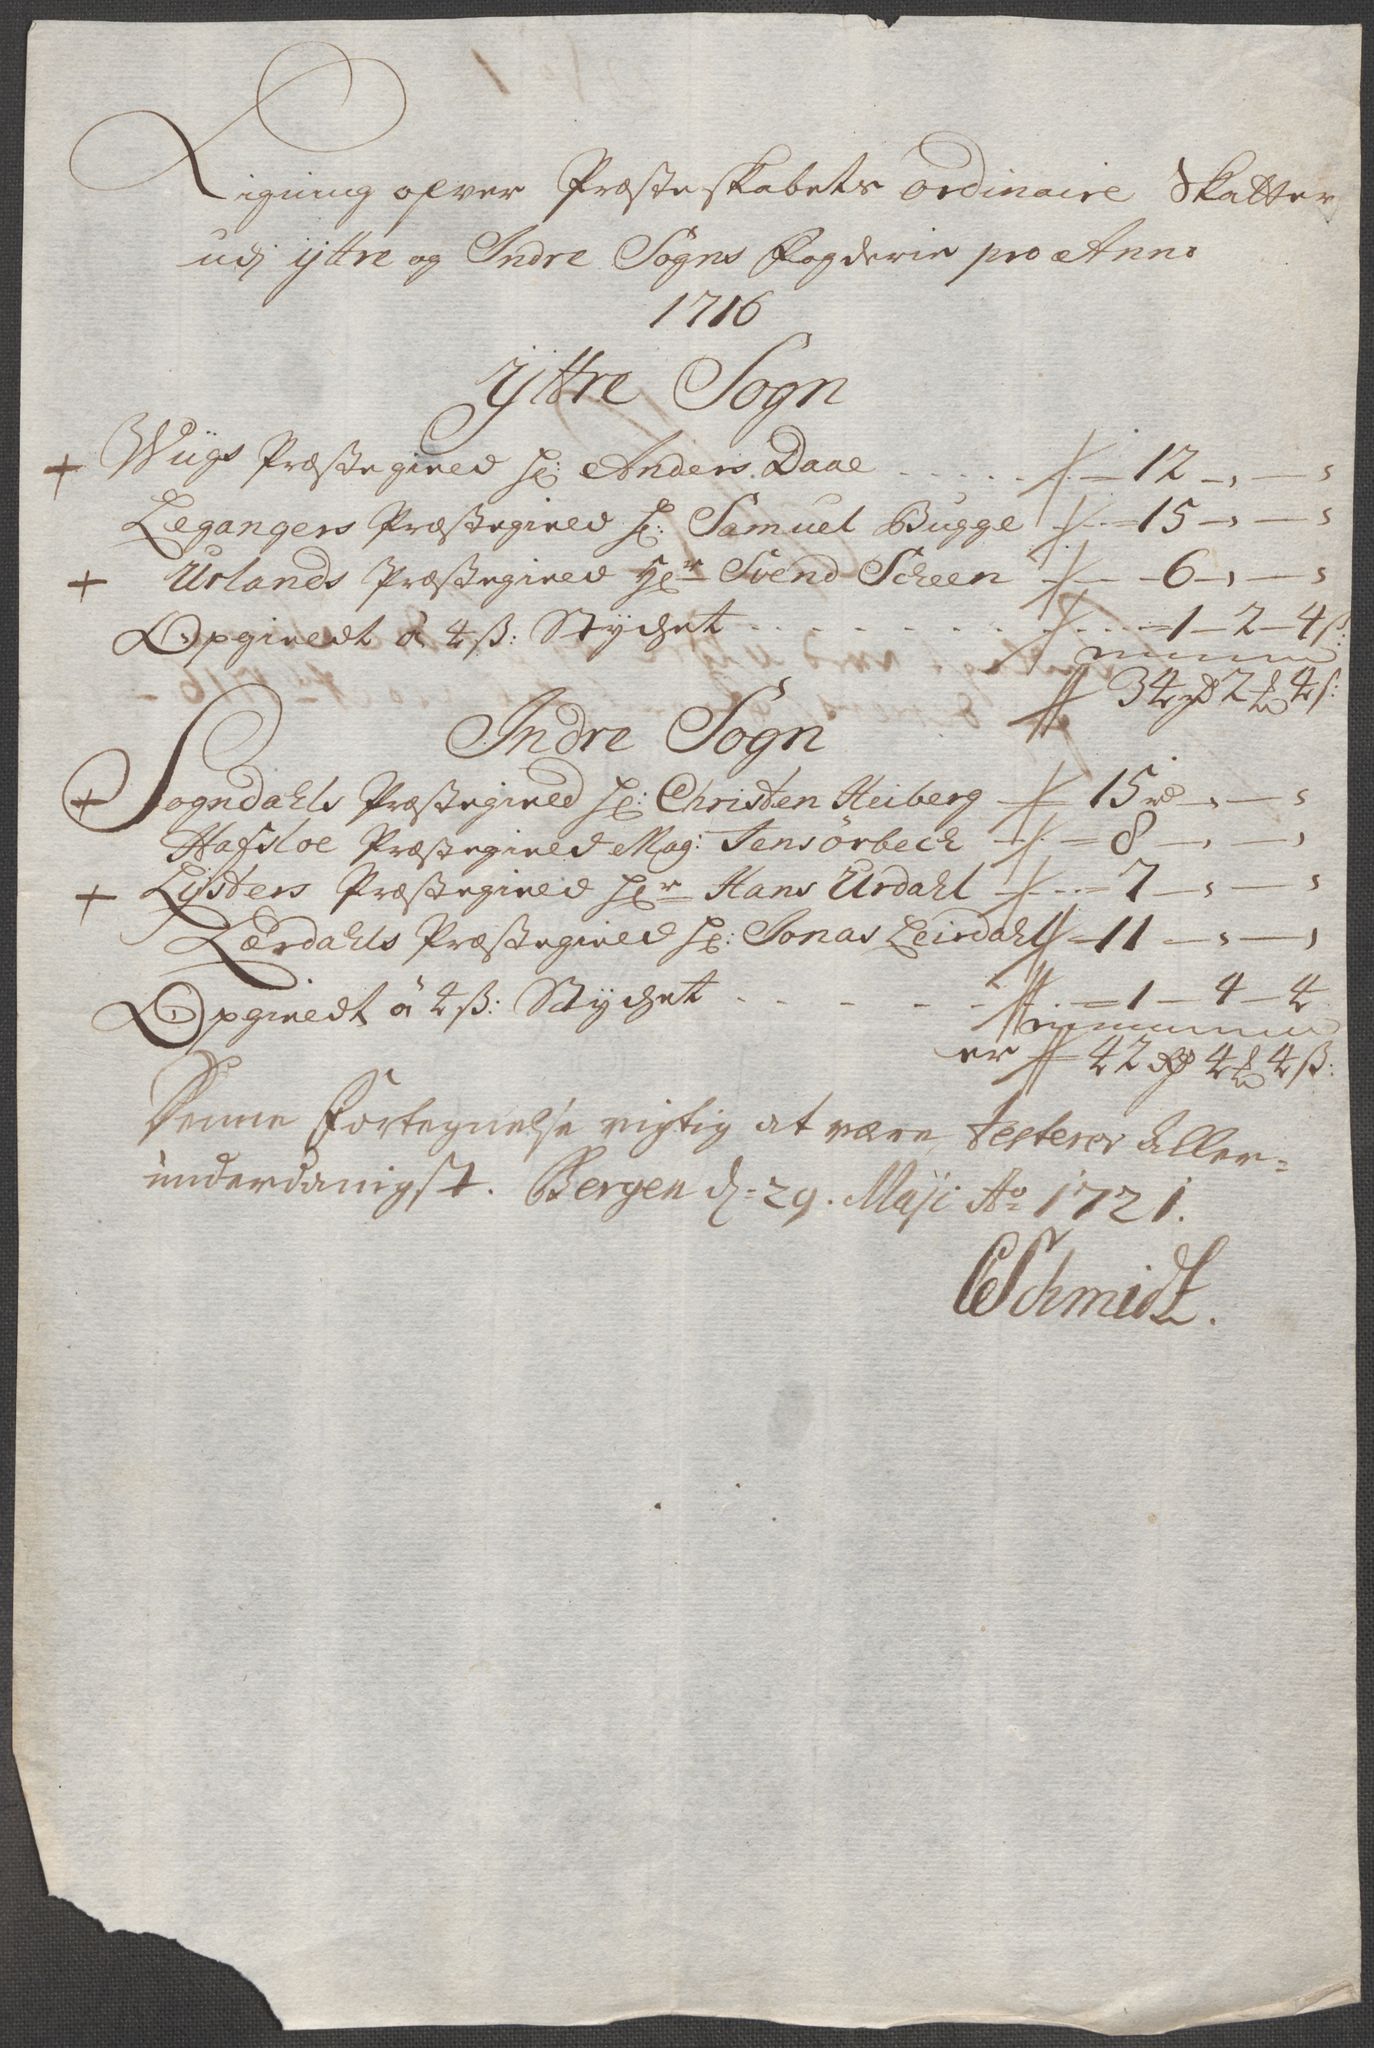 Ligning ofver Præsteskabets ordinaire Skatter
udj ijttre og Indre Sogns Fogderie pro Anno
1716
ÿttre Sogn
+ Wiigs Præstegield Hr: Anders Daae - 12 - , - ,
Legangers Præstegield Hr: Samuel Bugge - 15 - , - ,
+ Urlands Præstegield Hr Svend Scheen - 6 - , - ,
Opgieldt â 4 ß: Stÿchet - 1 - 2 - 4 ß:
34 rd 2 4 ß:
Indre Sogn
+ Sogndahls Præstegield Hr: Christen Heiberg - 15 rd - , - ,
Hafsloe Præstegield Mag: Jens Örbech - 8 - , - ,
+ Lÿsters Præstegield Hr Hans Urdahl - 7 - , - ,
Lærdahls Præstegield Hr: Jonas Leirdahl - 11 - , - ,
Opgieldt â 4 ß: Stÿchet - 1 - 4 - 4
er 42 Rd 4 4 ß:
Denne Fortegnelse rigtig at være, testerer Aller=
underdanigst. Bergen d: 29. Maji Ao 1721.
CSchmidt.